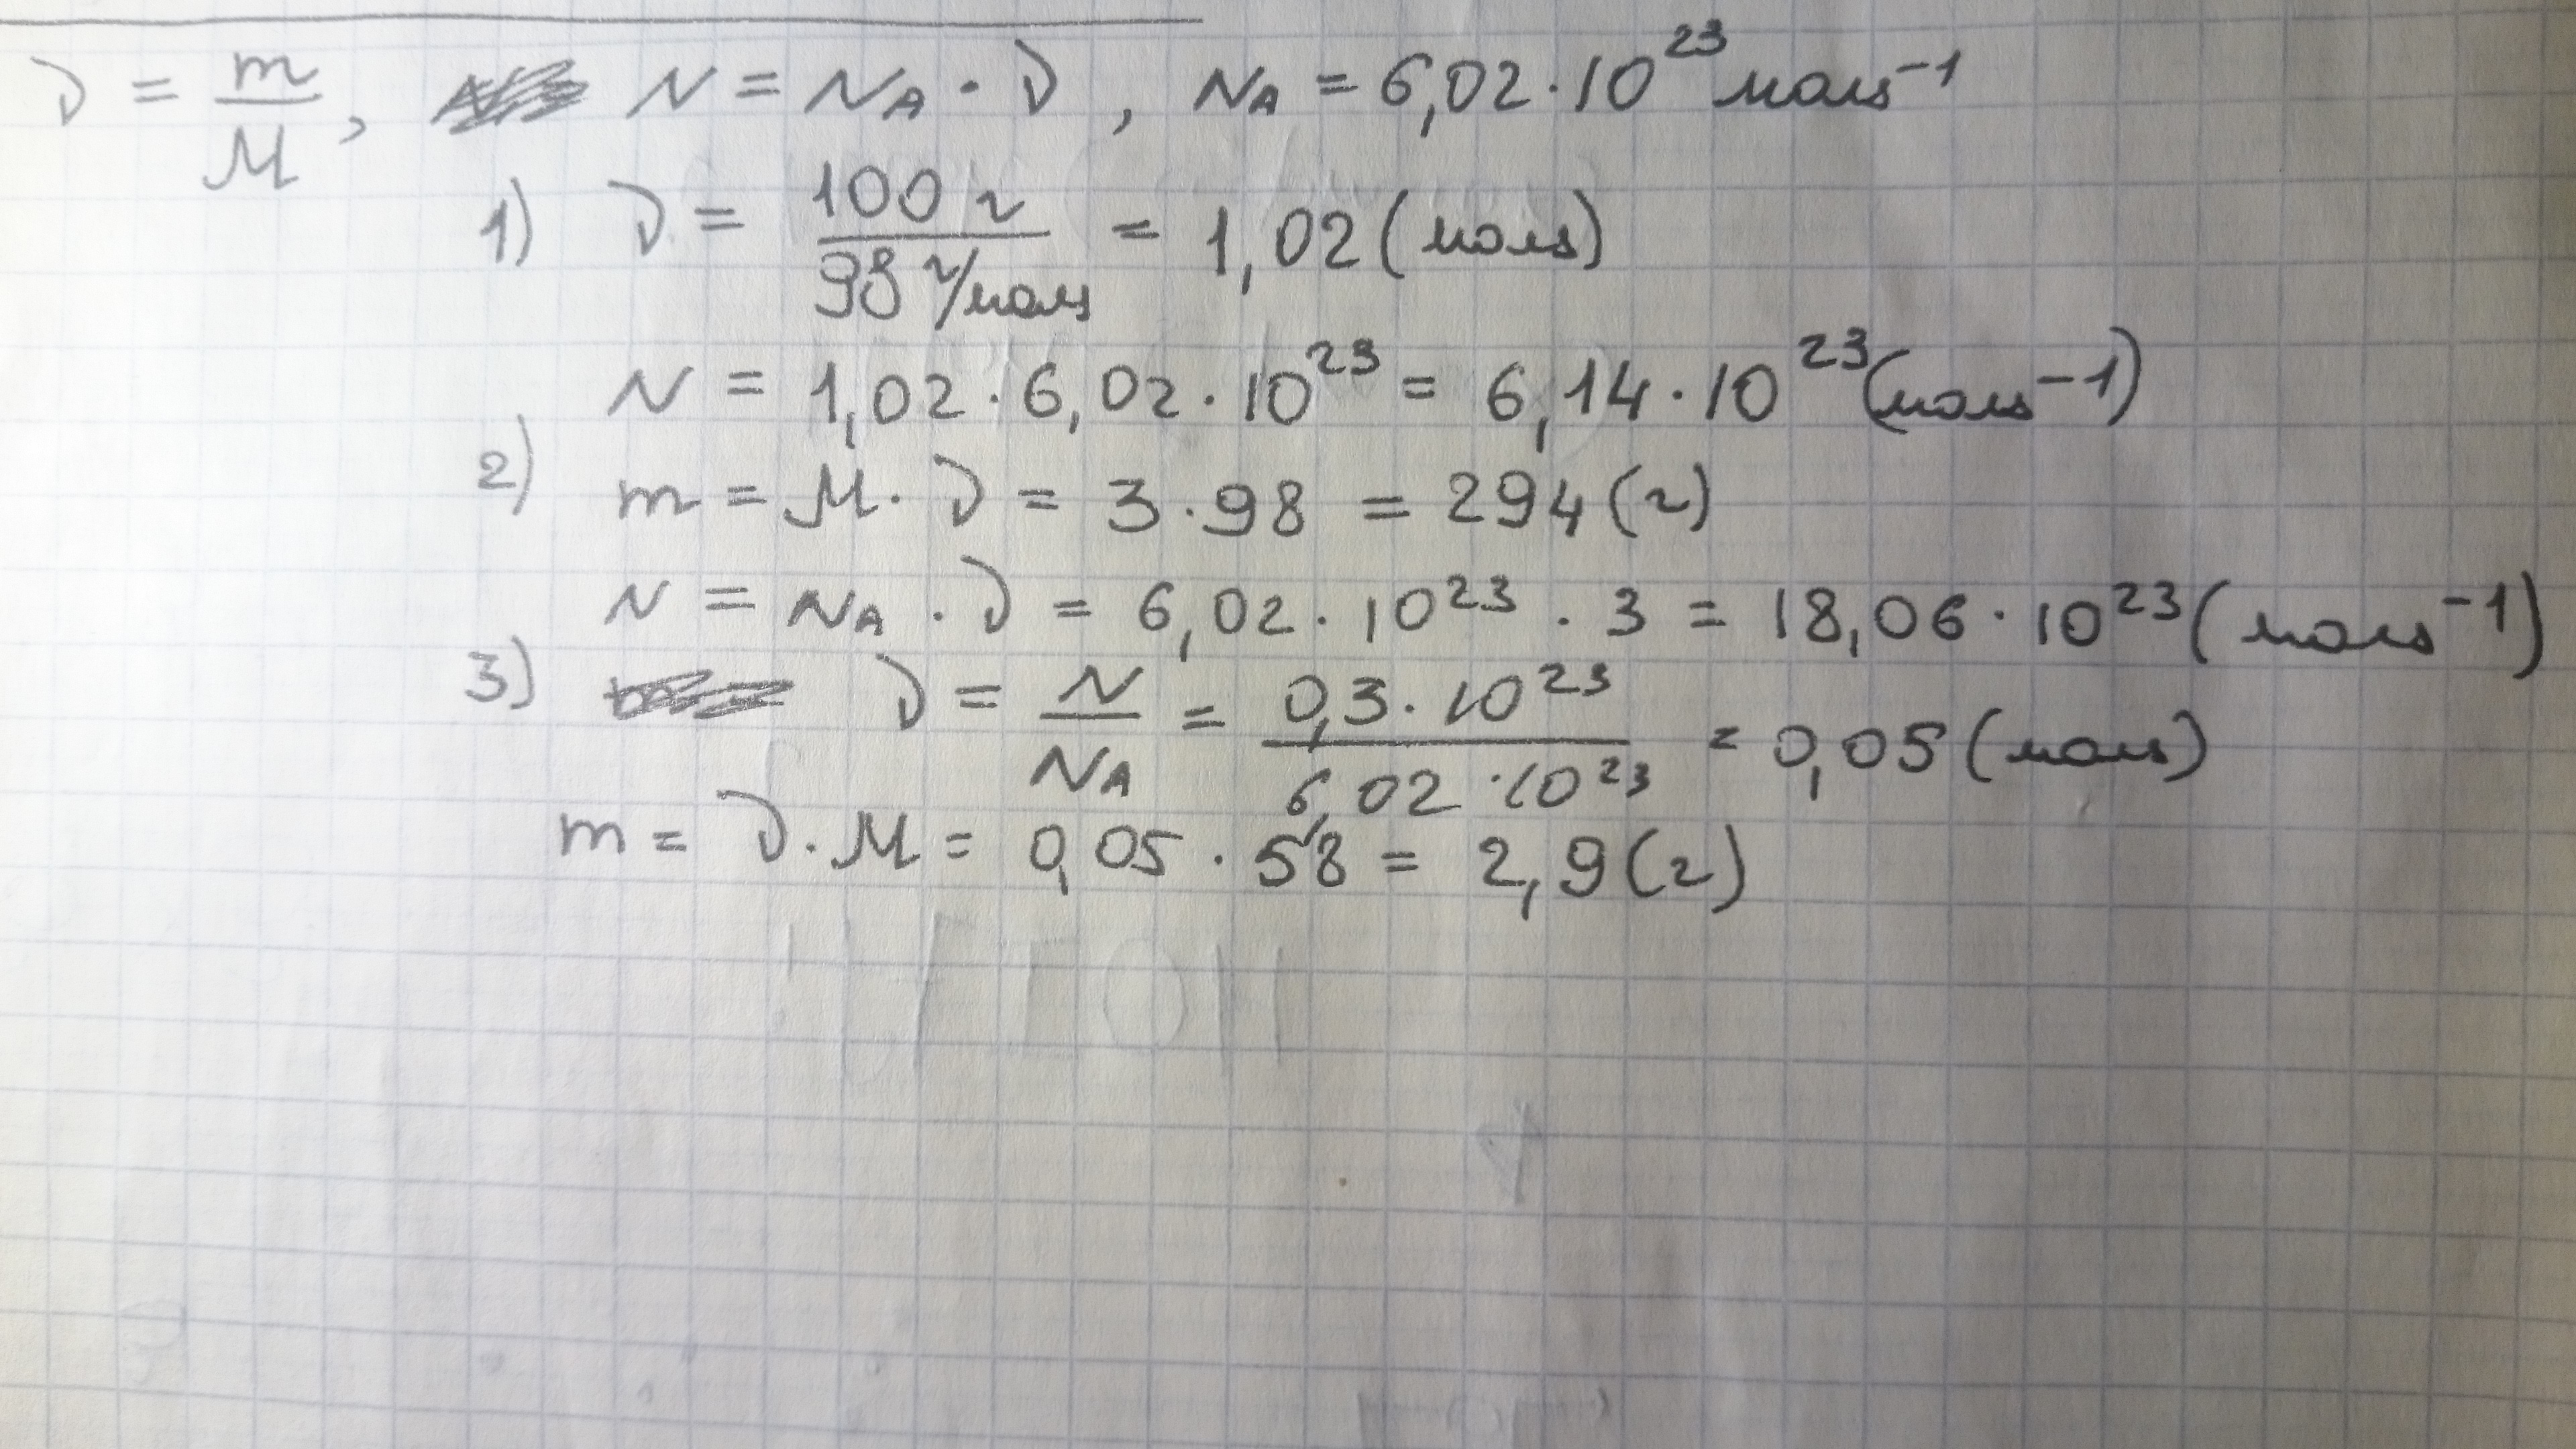 ν = m/M, N = N_A · ν, N_A = 6,02 · 10^23 моль^-1
1) ν = 100 г / 98 г/моль = 1,02 (моль)
N = 1,02 · 6,02 · 10^23 = 6,14 · 10^23 (моль^-1)
2) m = M · ν = 3 · 98 = 294 (г)
N = N_A · ν = 6,02 · 10^23 · 3 = 18,06 · 10^23 (моль^-1)
3) ν = N/N_A = 0,3 · 10^23 / 6,02 · 10^23 = 0,05 (моль)
m = ν · M = 0,05 · 58 = 2,9 (г)